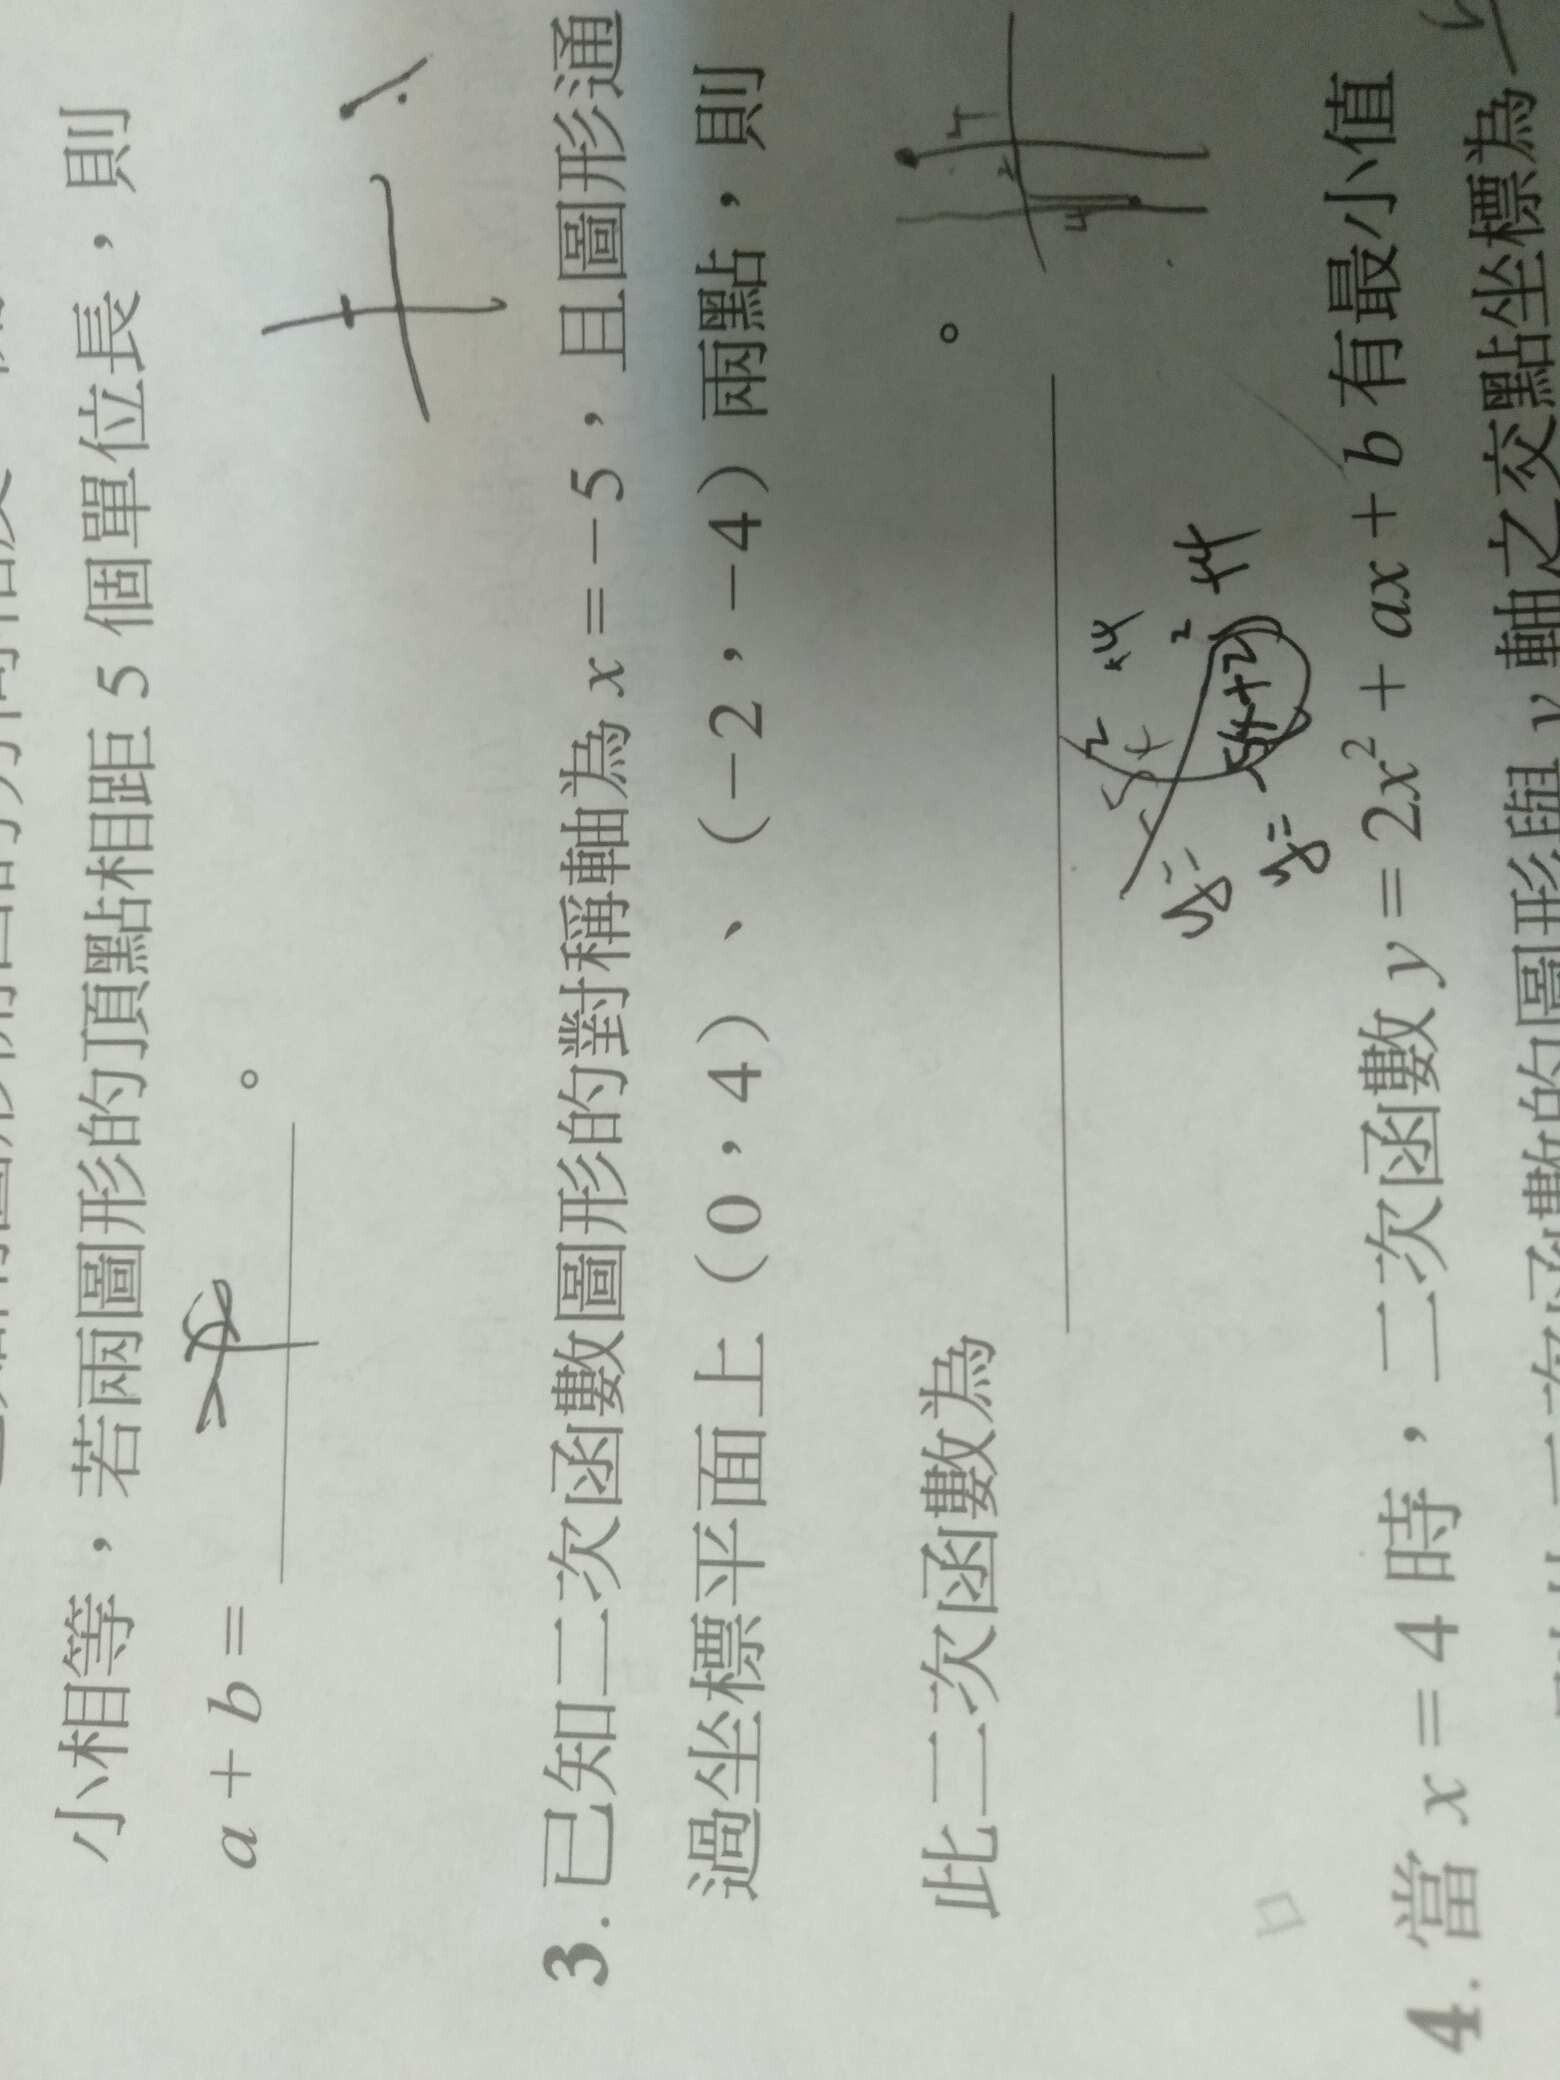 小相等，若兩圖形的頂點相距 5 個單位長，則
a + b = 。
3. 已知二次函數圖形的對稱軸為 x = −5，且圖形通
過坐標平面上（0，4）、（−2，−4）兩點，則
4
2
4
此二次函數為 。
y=
y= 5(x+2)² +4
4. 當 x = 4 時，二次函數 y = 2x² + ax + b 有最小值
二次函數的圖形與 y 軸之交點坐標為